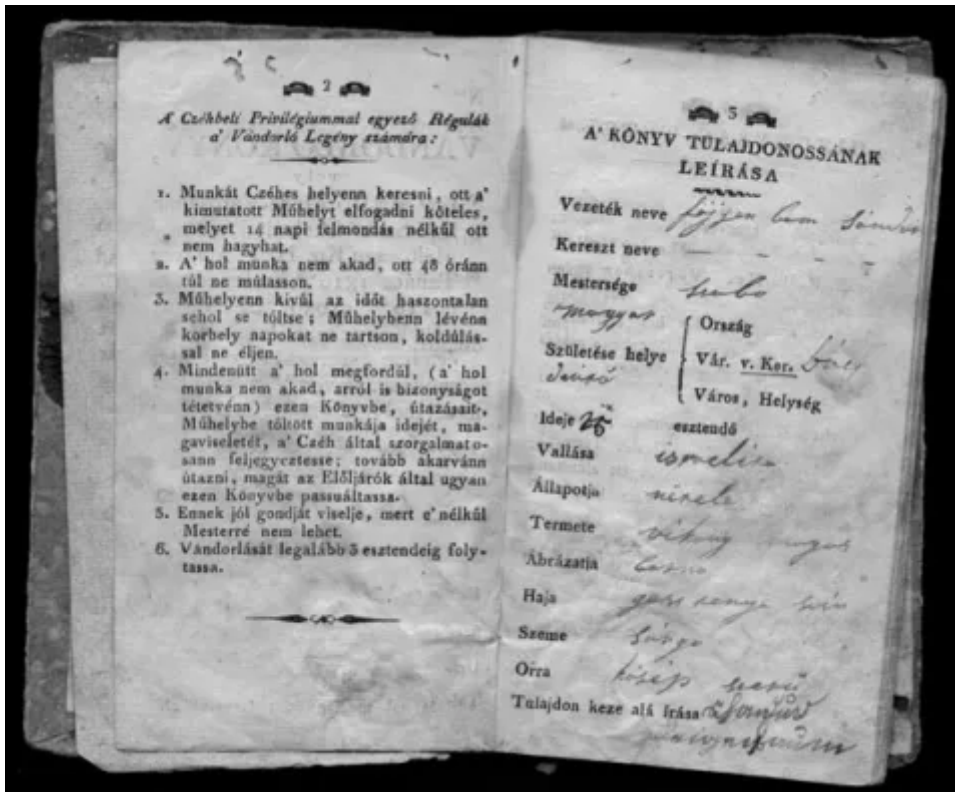 2
A' Czéhbeli Privilégiummal egyező Régulák
a' Vándorló Legény számára:
1. Munkát Czéhes helyenn keresni, ott a'
kimutatott Műhelyt elfogadni köteles,
melyet 14 napi felmondás nélkűl ott
nem hagyhat.
2. A' hol munka nem akad, ott 48 óránn
túl ne múlasson.
3. Műhelyenn kívűl az időt haszontalan
sehol se töltse; Műhelybenn lévénn
korhely napokat ne tartson, koldúlás-
sal ne éljen.
4. Mindenütt a' hol megfordúl, (a' hol
munka nem akad, arról is bizonyságot
tétetvénn) ezen Könyvbe, útazásait,
Műhelybe töltott munkája idejét, ma-
gaviseletét, a' Czéh által szorgalmato-
sann feljegyeztesse; tovább akarvánn
útazni, magát az Előljárók által ugyan
ezen Könyvbe passuáltassa.
5. Ennek jól gondját viselje, mert e' nélkűl
Mesterré nem lehet.
6. Vándorlását legalább 3 esztendeig foly-
tassa.
3
A' KÖNYV TULAJDONOSSÁNAK
LEÍRÁSA
Vezeték neve Sándor
Kereszt neve — – – –
Mestersége szabo
magyar Ország
Születése helye Vár. v. Ker.
Város, Helység
Ideje 25 esztendő
Vallása
Állapotja
Termete magas
Ábrázatja
Haja
Szeme sárga
Orra közép szerű
Tulajdon keze alá írása